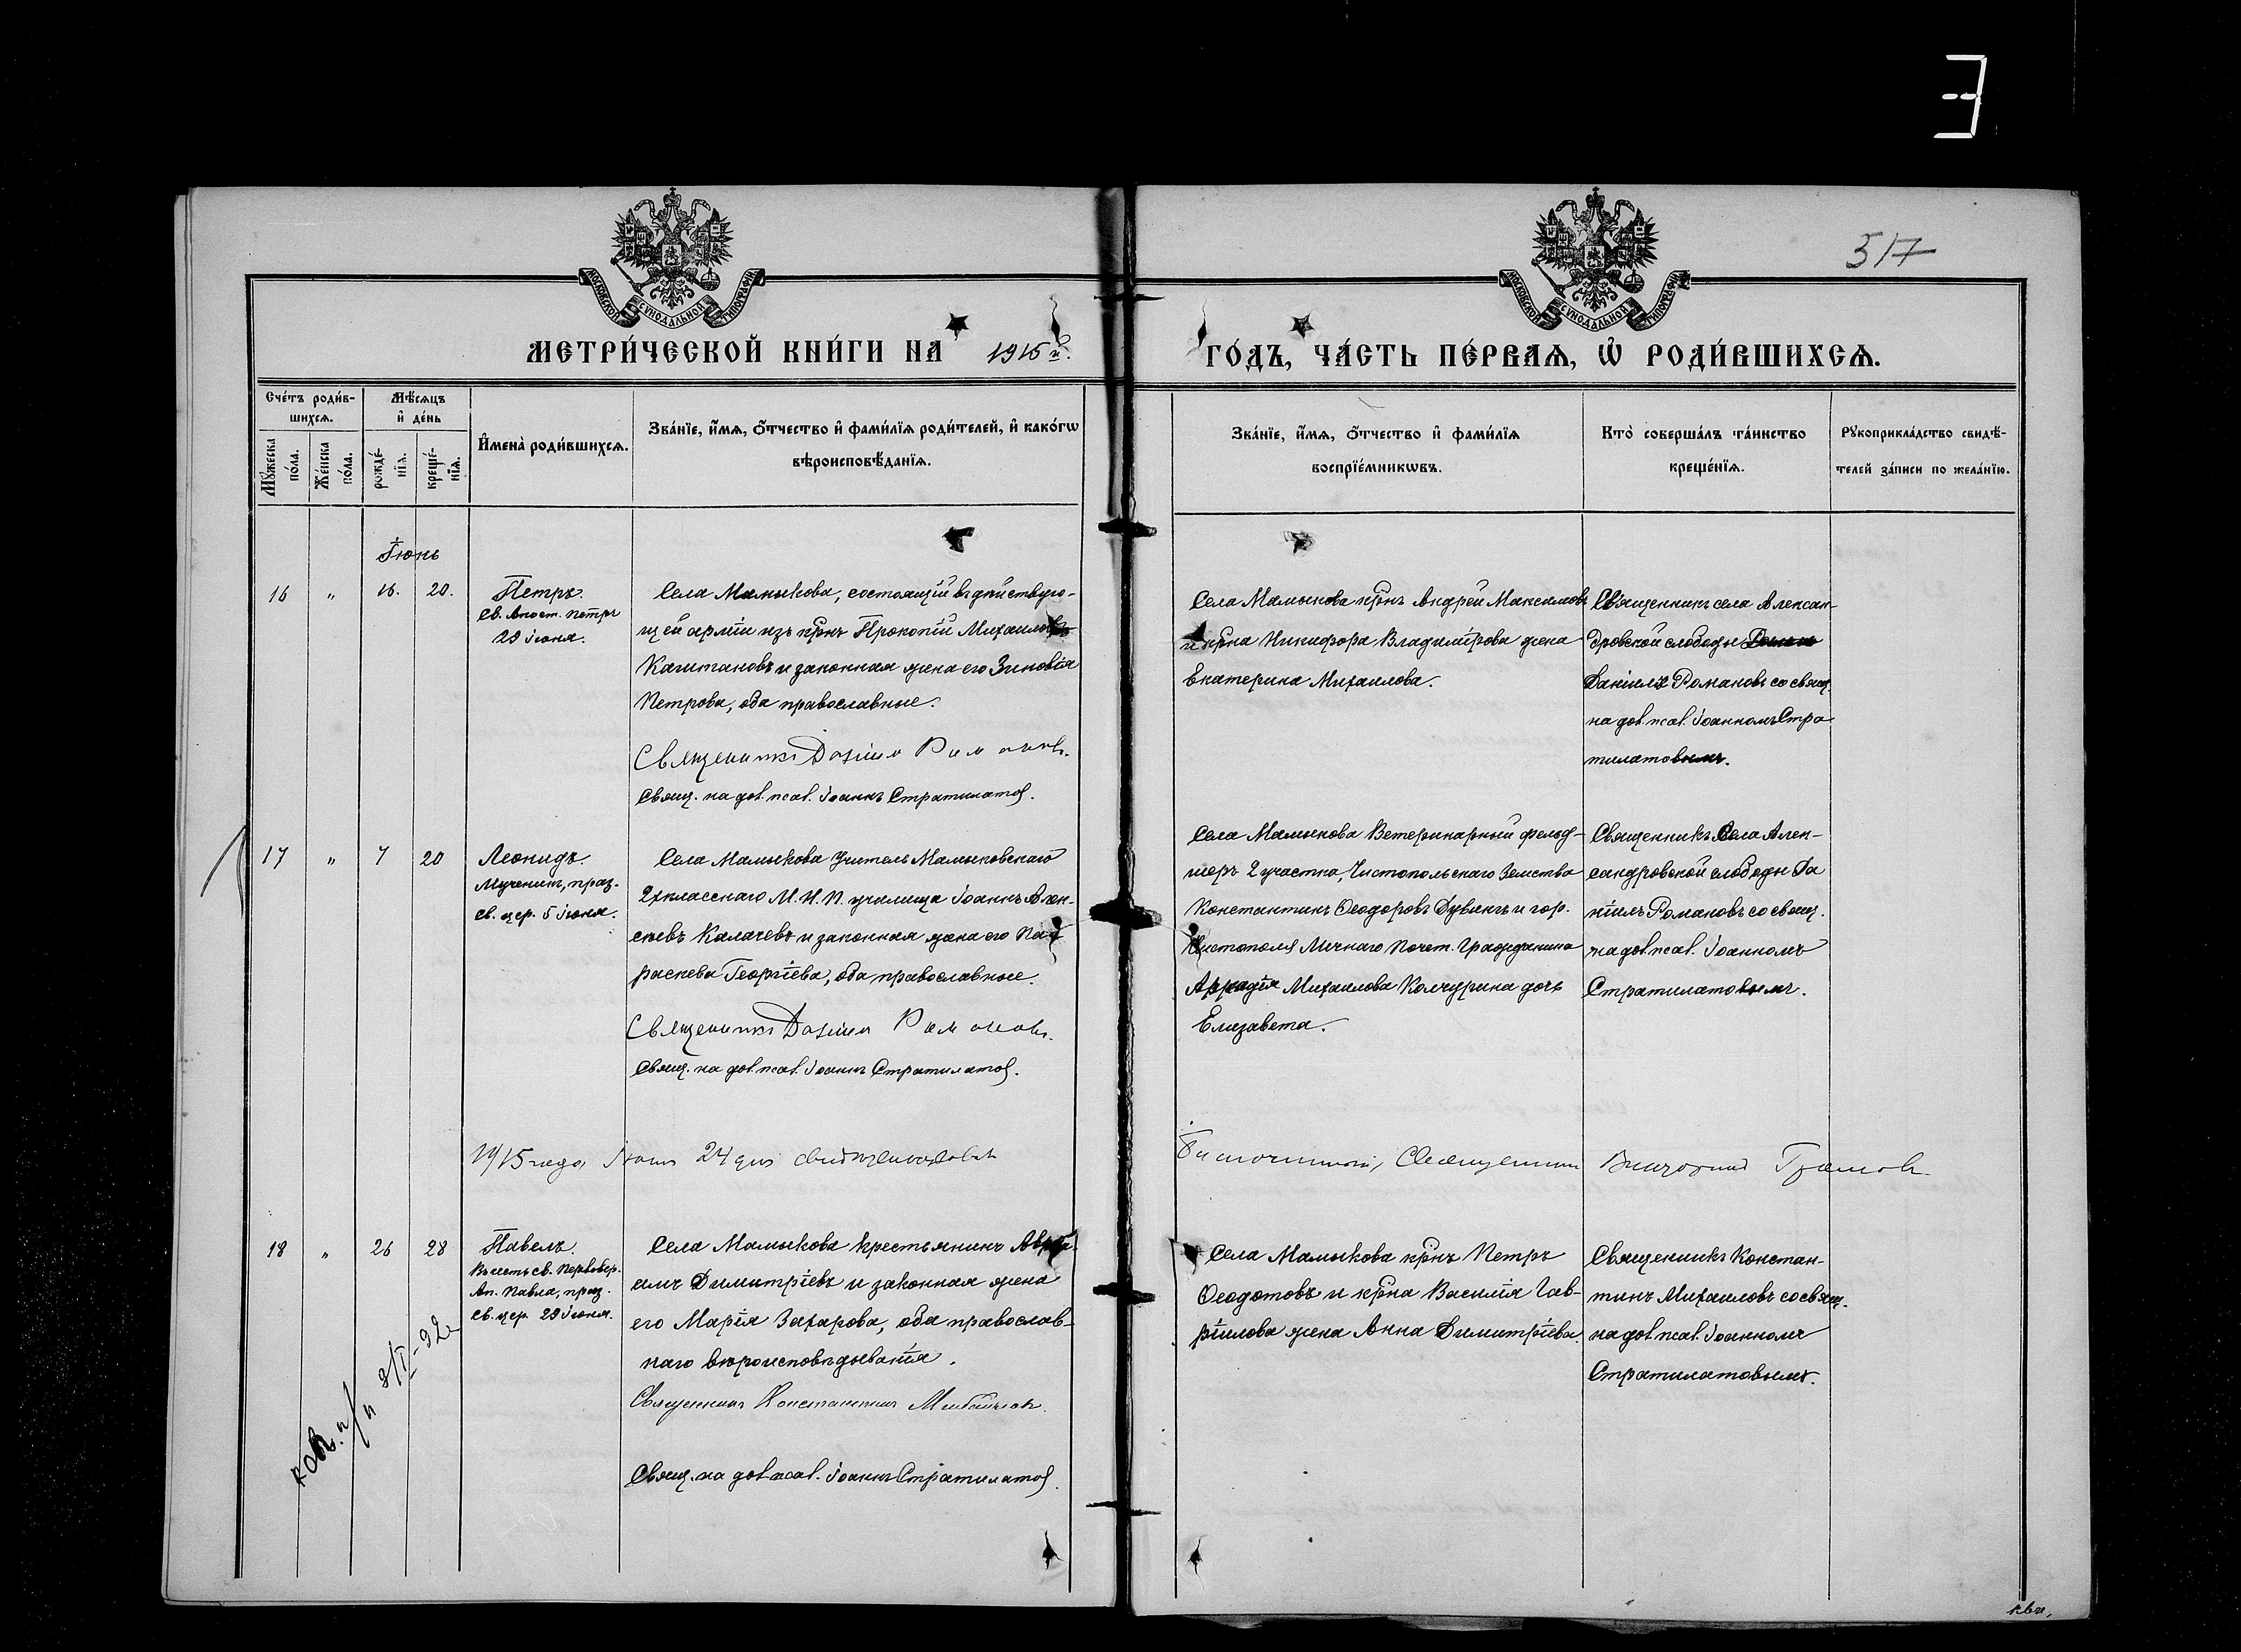 517
МОСКОВСКОЙ СѴНОДАЛЬНОЙ ТИПОГРАФІИ
МОСКОВСКОЙ СѴНОДАЛЬНОЙ ТИПОГРАФІИ
МЕТРИ́ЧЕСКОЙ КНИ́ГИ НА 1915 й. ГО́ДЪ, ЧА́СТЬ ПЕ́РВАѦ, Ѡ҆ РОДИ́ВШИХСѦ.
Сче́тъ роди́в-
шихсѧ.
Мѣ́сѧцъ
и҆ де́нь
Мꙋ́жеска
по́ла.
Же́нска
по́ла.
рожде́-
нїѧ.
креще́-
нїѧ.
И҆мена̀ роди́вшихсѧ.
Зва́нїе, и҆́мѧ, ѻ҆́тчество и҆ фами́лїѧ роди́телей, и҆ како́гѡ
вѣроисповѣ́данїѧ.
Зва́нїе, и҆́мѧ, ѻ҆́тчество и҆ фами́лїѧ
воспрїе́мникѡвъ.
Кто̀ соверша́лъ та́инство
креще́нїѧ.
Рꙋкоприкла́дство свидѣ́-
телей за́писи по жела́нїю.
Іюнь
16 " 16. 20.
Петръ.
Св. Апост. Петръ
29 іюня.
Села Мамыкова, состоящій въ дѣйствую-
щей арміи изъ крнъ Прокопій Михаиловъ
Капитановъ и законная жена его Зиновія
Петрова, оба православные.
Священникъ Даніилъ Романовъ.
Свящ. на дов. псал. Іоаннъ Стратилатов.
Села Мамыкова крнъ Андрей Максимовъ
и крна Никифора Владимірова жена
Екатерина Михаилова.
Священникъ села Алексан-
дровской слободы
Даніилъ Романовъ со свящ.
на дов. псал. Іоанномъ Стра-
тилатовымъ.
17 " 7 20
Леонидъ.
Мученикъ, праз.
св. цер. 5 іюня.
Села Мамыкова Учитель Мамыковскаго
2хкласснаго М.Н.П. училища Іоаннъ Алек-
сѣевъ Калачевъ и законная жена его Па-
раскева Георгіева, оба православные.
Священникъ Даніилъ Романовъ.
Свящ. на дов. псал. Іоаннъ Стратилатов.
Села Мамыкова Ветеринарный фельд-
шеръ 2 участка, Чистопольскаго Земства
Константинъ Ѳеодоровъ и гор.
Чистополя Личнаго Почет. Гражданина
Аркадія Михаилова Колчурина дочь
Елизавета.
Священникъ Села Алек-
сандровской слободы Да
ніилъ Романовъ со свящ.
на дов. псал. Іоанномъ
Стратилатовымъ.
1915 года Іюня 24 дня свидѣтельствовалъ Благочинный, Священникъ
18 " 26 28
Павелъ.
Въ честь св. Первовер.
Ап. Павла, праз.
св. цер. 29 іюня.
Села Мамыкова крестьянинъ Авра-
амъ Димитріевъ и законная жена
его Марія Захарова, оба православ-
наго вѣроисповѣдыванія.
Священникъ Константинъ Михайловъ.
Свящ. на дов. псал. Іоаннъ Стратилатов.
Села Мамыкова крнъ Петръ
Ѳеодотовъ и крна Василія Гав-
ріилова жена Анна Димитріева.
Священникъ Констан-
тинъ Михаиловъ со свящ.
на дов. псал. Іоанномъ
Стратилатовымъ.